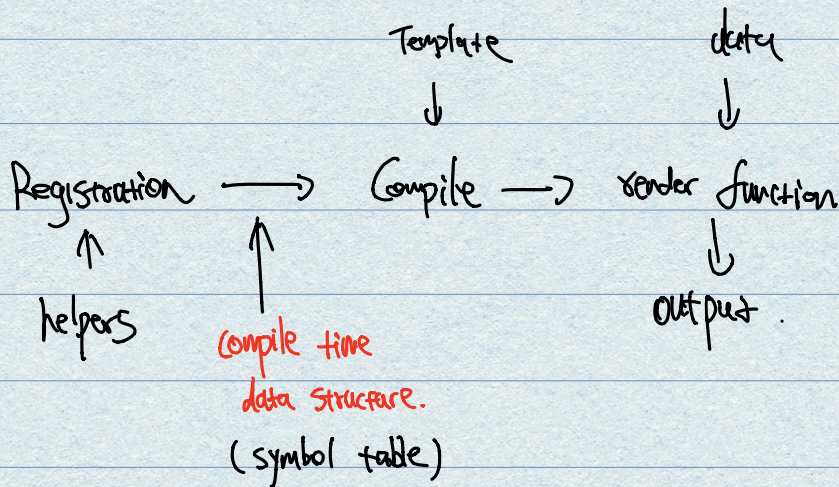 Template
data
Registration → Compile → render function
helpers
output.
compile time
data structure.
(symbol table)